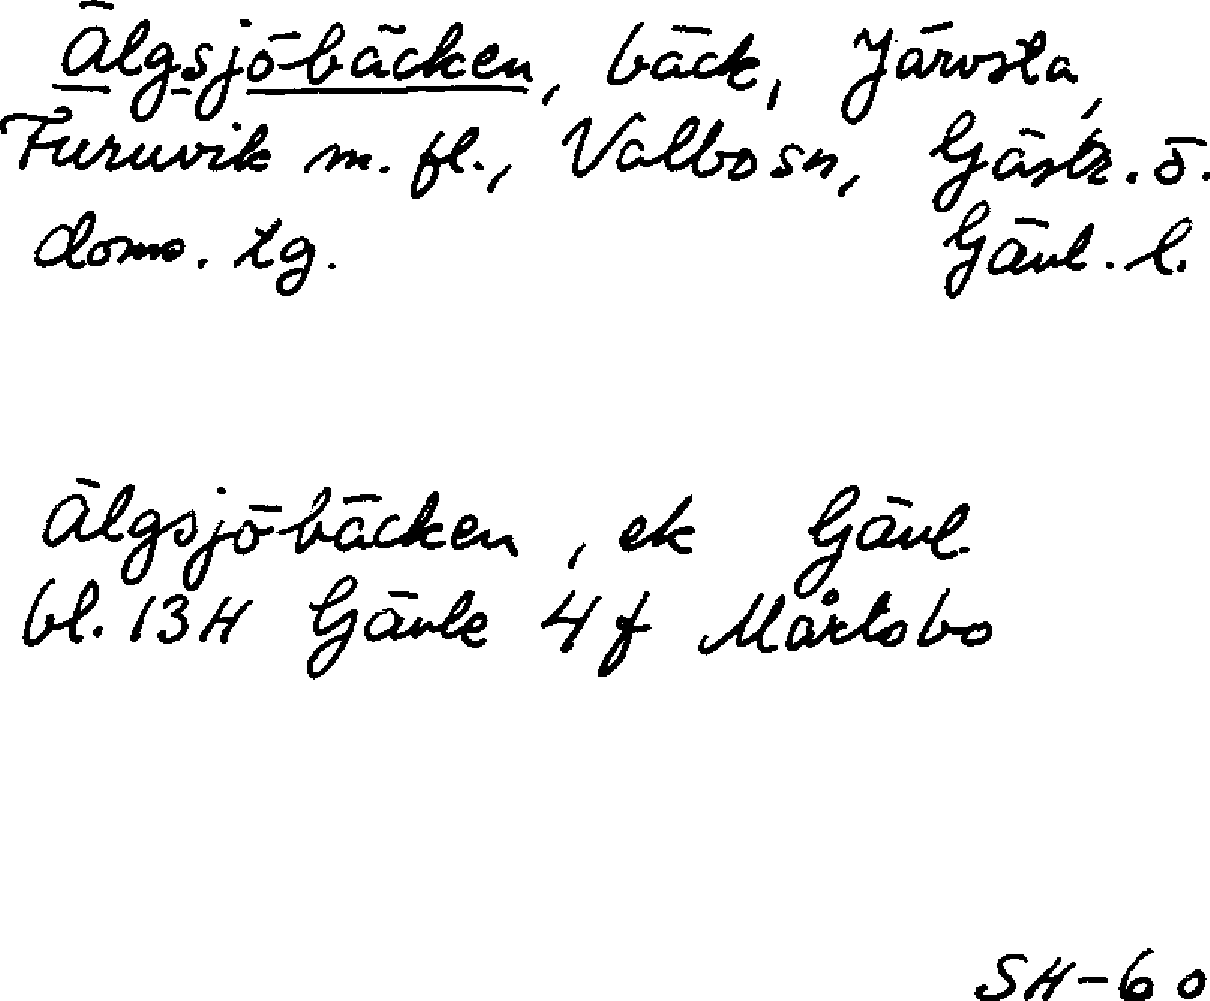 Älgsjöbäcken, bäck, Järvsta,
Furuvik m. fl., Valbo sn, Gästr. ö.
doms. tg. Gävl. l.
Älgsjöbäcken, ek Gävl.
bl. 13H Gävle 4f Mårtsbo
SH-60